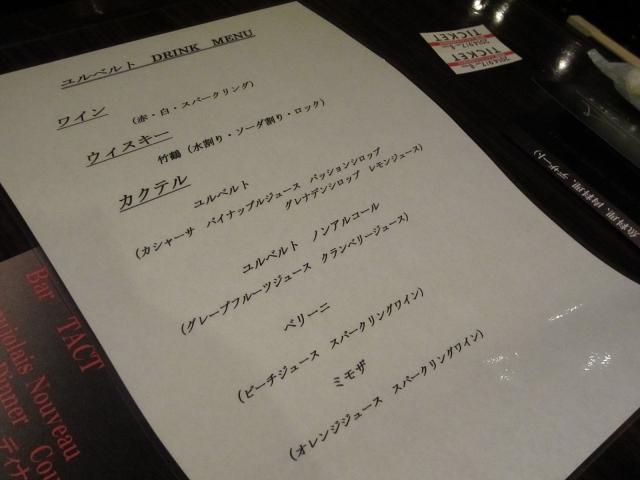 ユルベルト DRINK MENU
ワイン (赤・白・スパークリング)
ウィスキー
竹鶴 (水割り・ソーダ割り・ロック)
カクテル
ユルベルト
(カシャーサ パイナップルジュース パッションシロップ
グレナデンシロップ レモンジュース)
ユルベルト ノンアルコール
(グレープフルーツジュース クランベリージュース)
ベリーニ
(ピーチジュース スパークリングワイン)
ミモザ
(オレンジジュース スパークリングワイン)
Bar TACT
Nouveau
Dinner Cou
ディナ
TICKET
TICKET
魚料理、肉料理、デザート)